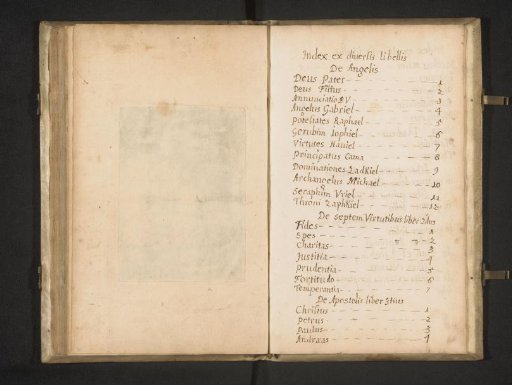 Index ex diversis libellis
De Angelis
Deus Pater - 1
Deus Filius - 2
Annunciatio BV - 3
Angelus Gabriel - 4
Potestates Raphael - 5
Cerubim Iophiel - 6
Virtutes Haniel - 7
Principatus Cama - 8
Dominationes Zadkiel - 9
Archangelus Michael - 10
Seraphim Vriel - 11
Throni Zaphkiel - 12
De septem Virtutibus liber 2dus
Fides - 1
Spes - 2
Charitas - 3
Justitia - 4
Prudentia - 5
Fortitudo - 6
Temperantia - 7
De Apostolis liber 3tius
Christus - 1
Petrus - 2
Paulus - 3
Andreas - 4